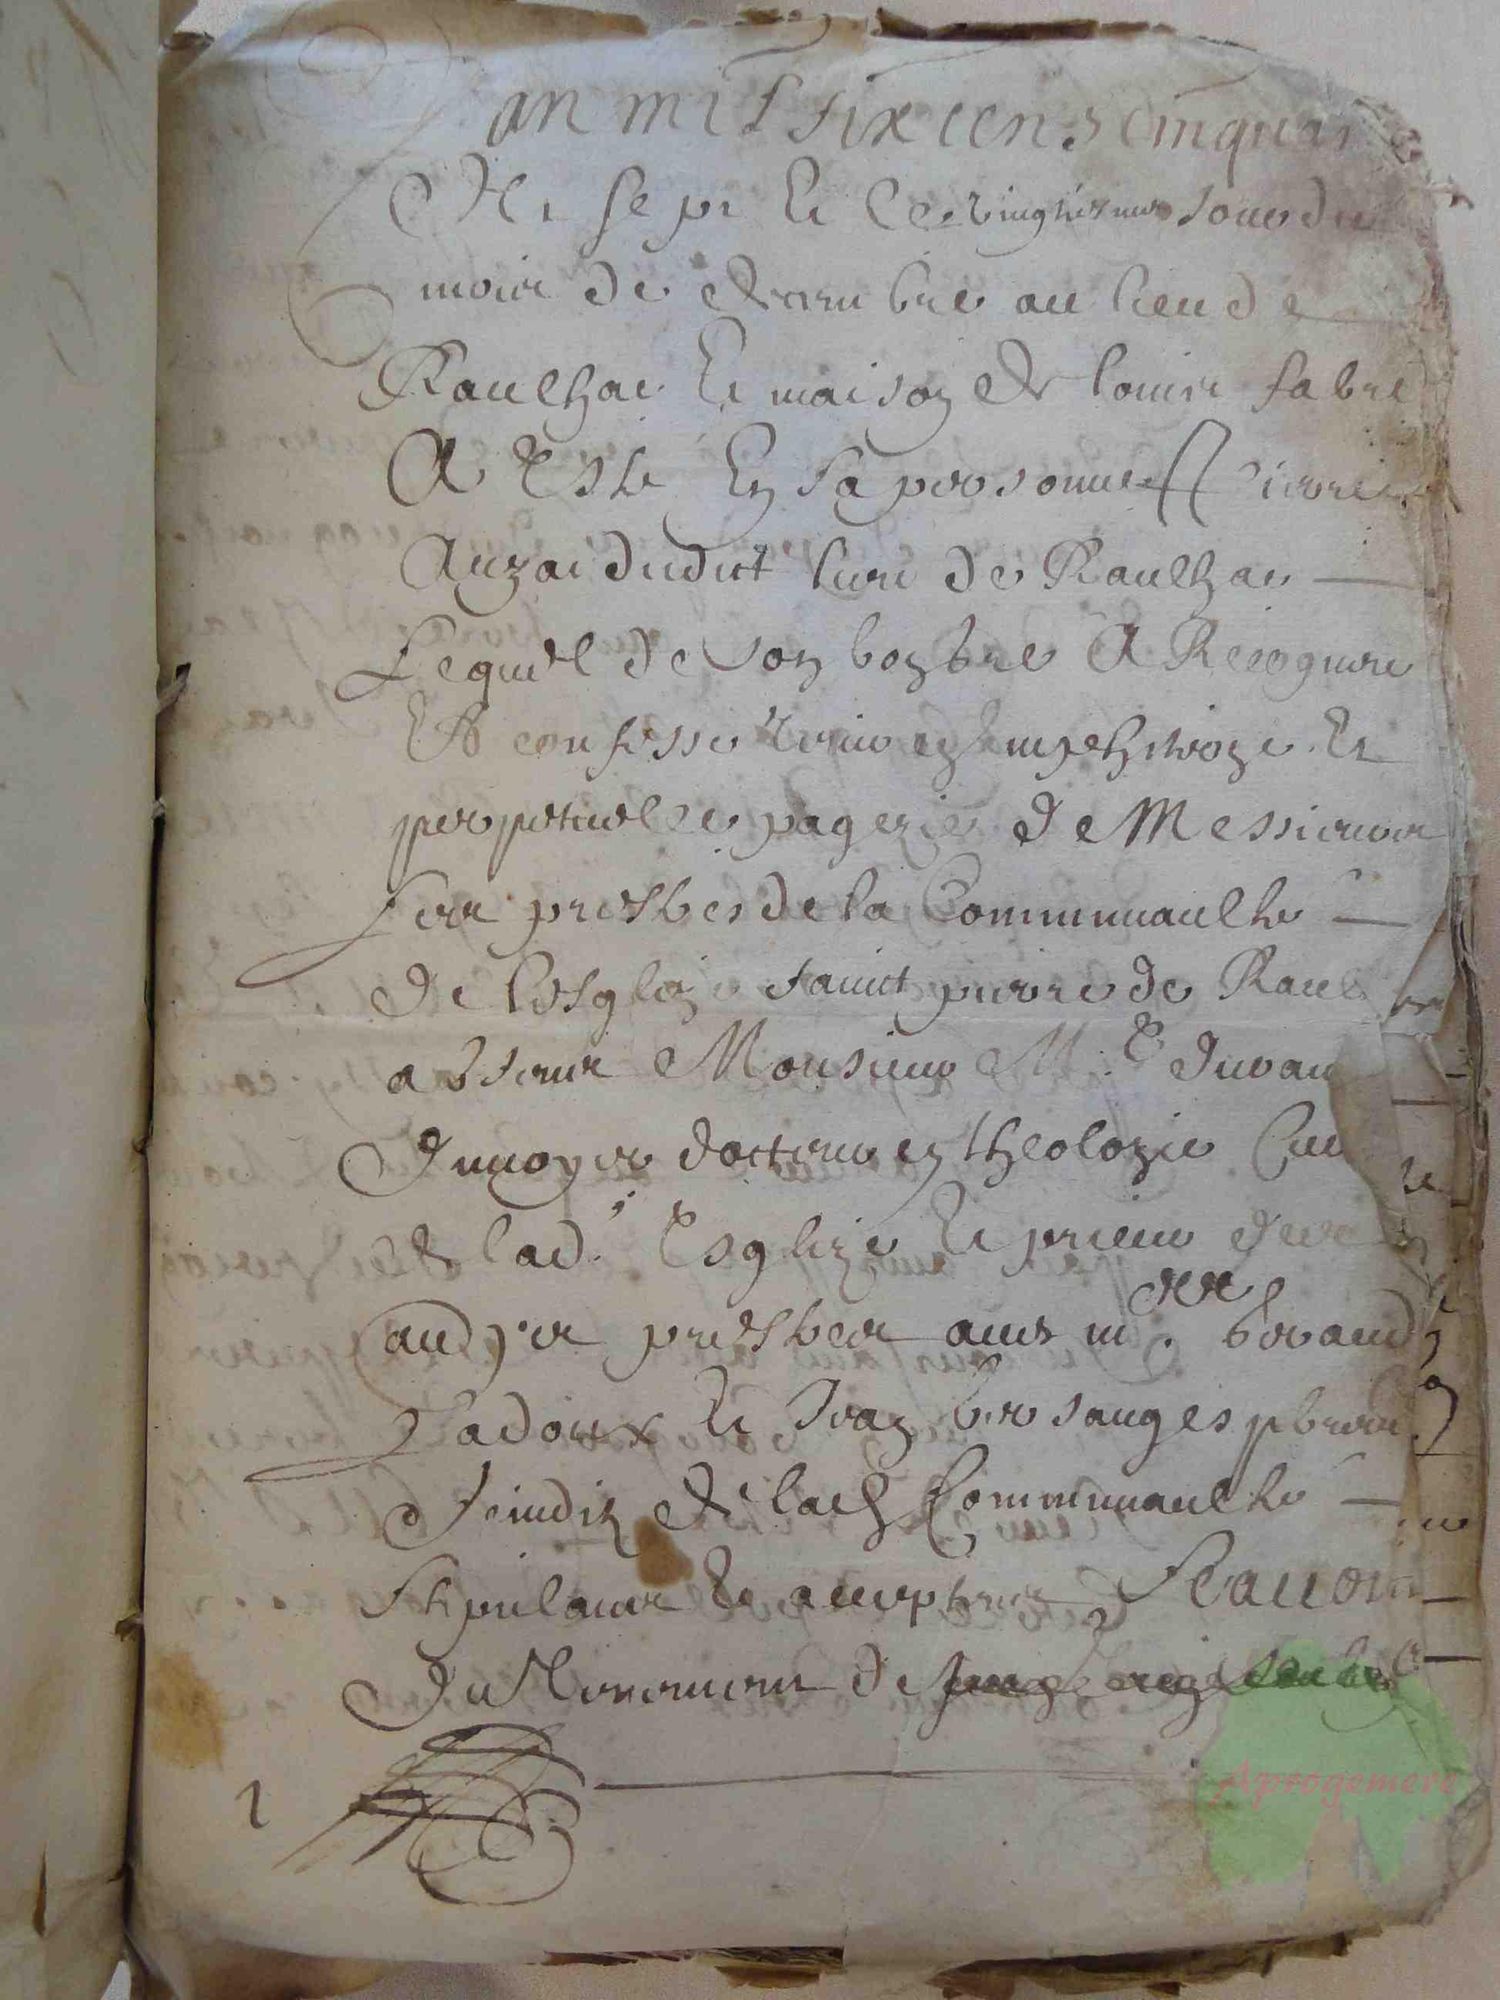 an mil six cens cinquan
te sept et le vingtiesme jour du
mois de decembre au lieu de
Raulhac et maison de louis fabre
A esté En sa personne pierre
Auzac dudict lieu de Raulhac
Lequel de son bon gre A Recogneu
Et confessé tenir en emphiteoze Et
perpetuelle pagezie de Messieurs
Les prestres de la Communaulté
de lesglize sainct pierre de Raul
absent Monsieur Me Duran
Dunoyer docteur en theologie Cu
de lad. Esglize Et prieur
prestres avec m. beraud
Ladoux Et Jean bersanges pbres
Scindix de lad Communaulté
stipulans Et acceptans Scavoir
Du tenement de
1
Aprogemere